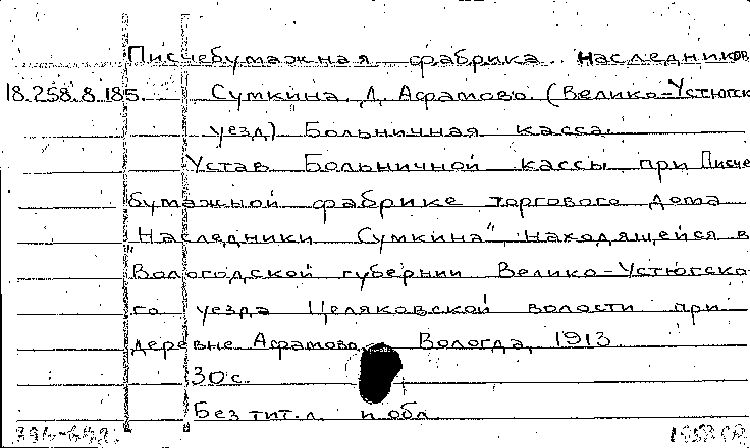 Писчебумажная фабрика наследников
18.258.8.185. Сумкина. Д. Афамово. (Велико-Устюгск
уезд) Больничная касса.
Устав Больничной кассы при Писче
бумажной фабрике торгового дома
"Наследники Сумкина", находящейся в
Вологодской губернии Велико-Устюгско
го уезда Целяковской волости при
деревне Афамово. Вологда, 1913
30 с.
Без тит. л. и обл.